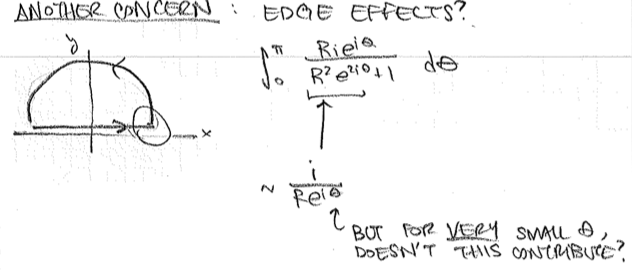 ANOTHER CONCERN : EDGE EFFECTS?
y
x
∫₀^π Rie^{iθ} / (R²e^{2iθ}+1) dθ
~ i / Re^{iθ}
BUT FOR VERY SMALL θ,
DOESN'T THIS CONTRIBUTE?